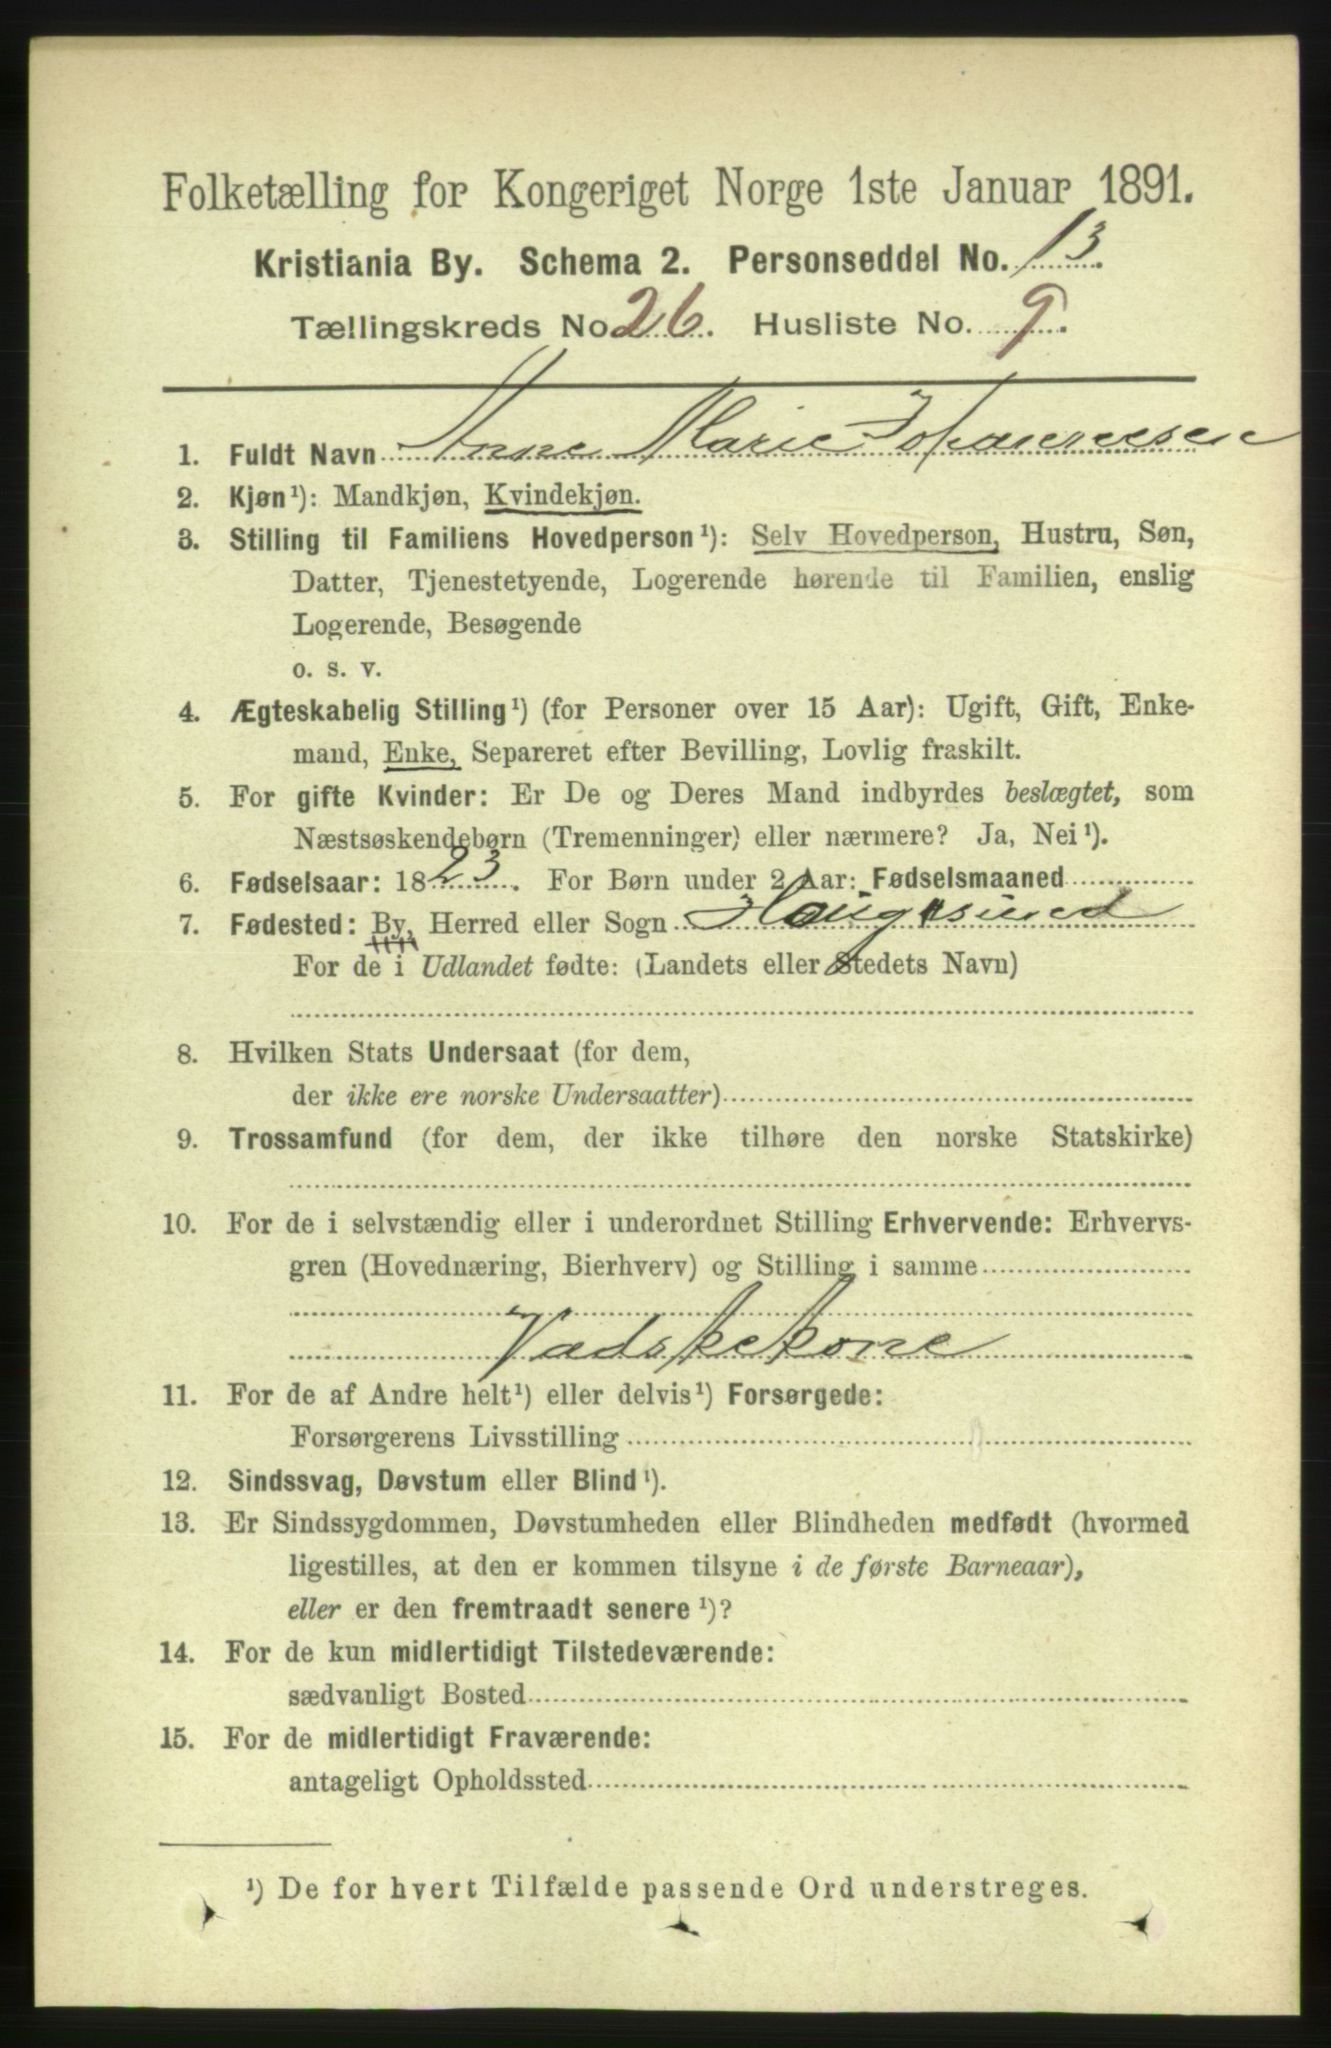 Folketælling for Kongeriget Norge 1ste Januar 1891.
Kristiania By. Schema 2. Personseddel No. 13.
Tællingskreds No 26. Husliste No. 9.
1. Fuldt Navn Anne Marie Johannesen
2. Kjøn¹): Mandkjøn, Kvindekjøn.
3. Stilling til Familiens Hovedperson¹): Selv Hovedperson, Hustru, Søn,
Datter, Tjenestetyende, Logerende hørende til Familien, enslig
Logerende, Besøgende
o. s. v.
4. Ægteskabelig Stilling¹) (for Personer over 15 Aar): Ugift, Gift, Enke-
mand, Enke, Separeret efter Bevilling, Lovlig fraskilt.
5. For gifte Kvinder: Er De og Deres Mand indbyrdes beslægtet, som
Næstsøskendebørn (Tremenninger) eller nærmere? Ja, Nei¹).
6. Fødselsaar: 1823. For Børn under 2 Aar: Fødselsmaaned
7. Fødested: By, Herred eller Sogn Haugsund
For de i Udlandet fødte: (Landets eller Stedets Navn)
8. Hvilken Stats Undersaat (for dem,
der ikke ere norske Undersaatter)
9. Trossamfund (for dem, der ikke tilhøre den norske Statskirke)
10. For de i selvstændig eller i underordnet Stilling Erhvervende: Erhvervs-
gren (Hovednæring, Bierhverv) og Stilling i samme
Vadskekone
11. For de af Andre helt¹) eller delvis¹) Forsørgede:
Forsørgerens Livsstilling
12. Sindssvag, Døvstum eller Blind¹).
13. Er Sindssygdommen, Døvstumheden eller Blindheden medfødt (hvormed
ligestilles, at den er kommen tilsyne i de første Barneaar),
eller er den fremtraadt senere¹)?
14. For de kun midlertidigt Tilstedeværende:
sædvanligt Bosted
15. For de midlertidigt Fraværende:
antageligt Opholdssted
¹) De for hvert Tilfælde passende Ord understreges.